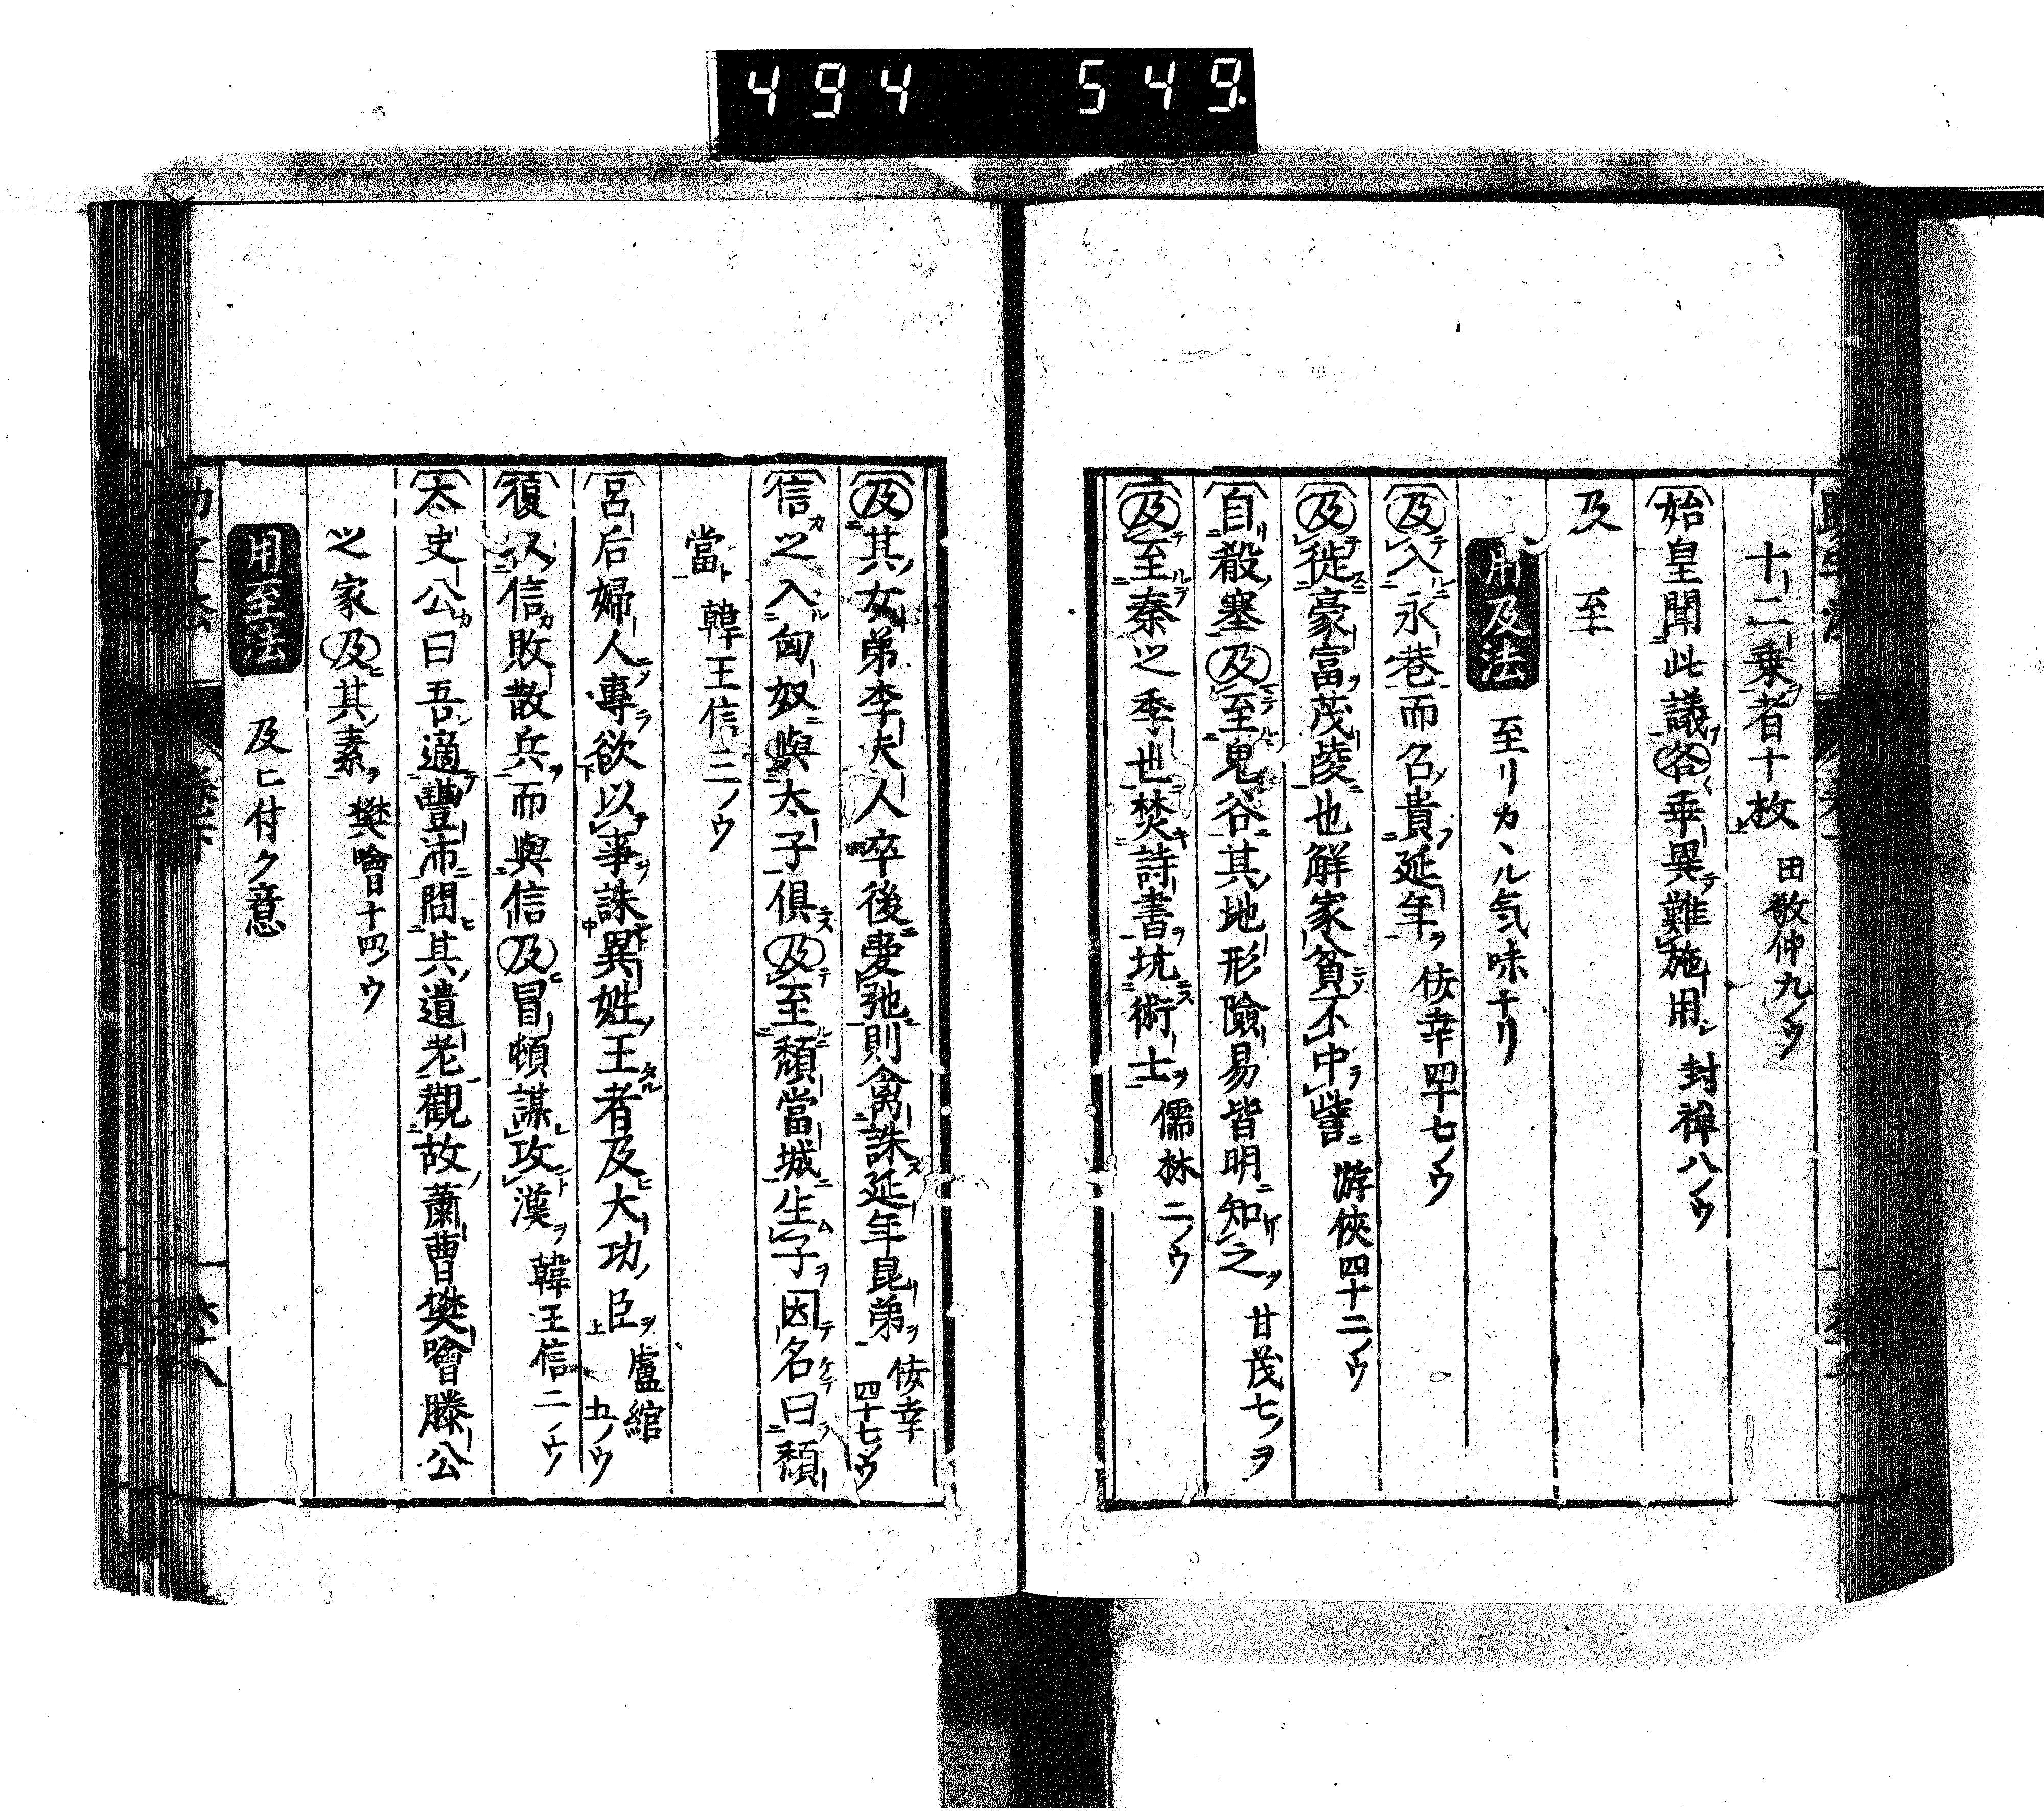 494 549.
十二乗者十枚 田敬仲九ノウ
始皇聞此議各乖異難施用 封禅八ノウ
及 至
用及法 至リカヽル気味ナリ
及入永巷而召貴延年 佞幸四十七ノウ
及徙豪富茂陵也解家貧不中訾 游俠四十二ノウ
自殽塞及至鬼谷其地形險易皆明知之 甘茂七ノヲ
及至秦之季世焚詩書坑術士 儒林二ノウ
及其女弟李夫人卒後愛弛則禽誅延年昆弟 佞幸四十七ノウ
信之入匈奴與太子俱及至頹當城生子因名曰頹
當 韓王信三ノウ
呂后婦人專欲以事誅異姓王者及大功臣 盧綰五ノウ
復以信敗散兵而與信及冒頓謀攻漢 韓王信二ノウ
太史公曰吾適豐沛問其遺老觀故蕭曹樊噲滕公
之家及其素 樊噲十四ノウ
用至法 及ヒ付ク意